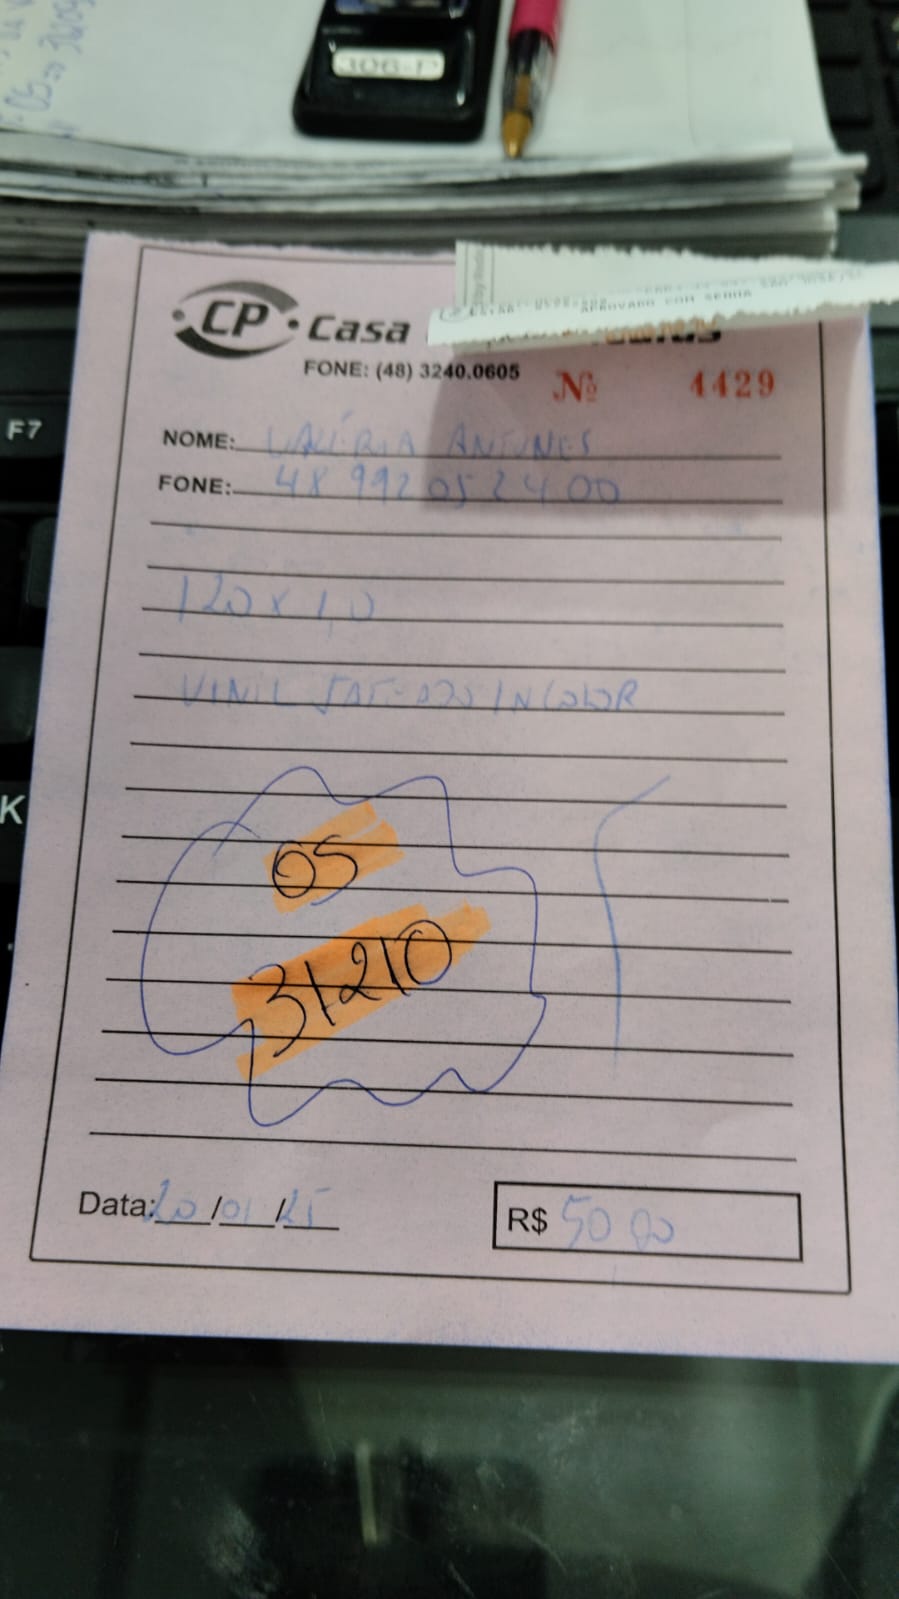 306-P
APROVADO COM SENHA
CP Casa
FONE: (48) 3240.0605
Nº 4429
F7
NOME: VALÉRIA ANTUNES
FONE: 48 992052400
120 x 1,0
VINIL INCOLOR
K
05
31210
Data: 20/01/25
R$ 50 00